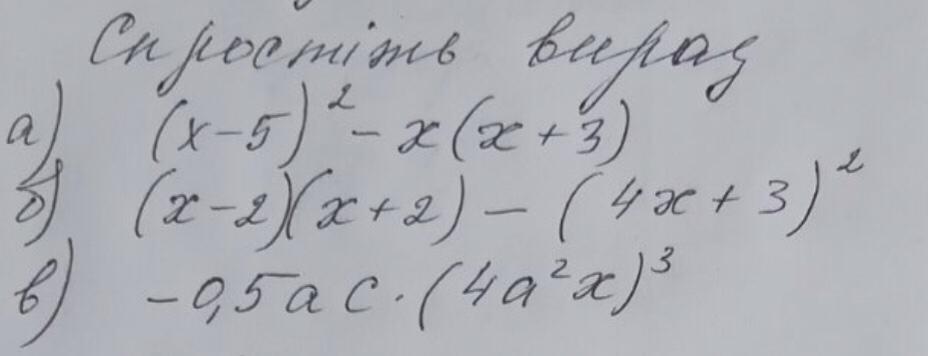 Спростіть вираз
а) (x-5)² - x(x+3)
б) (x-2)(x+2) - (4x+3)²
в) -0,5ac·(4a²x)³